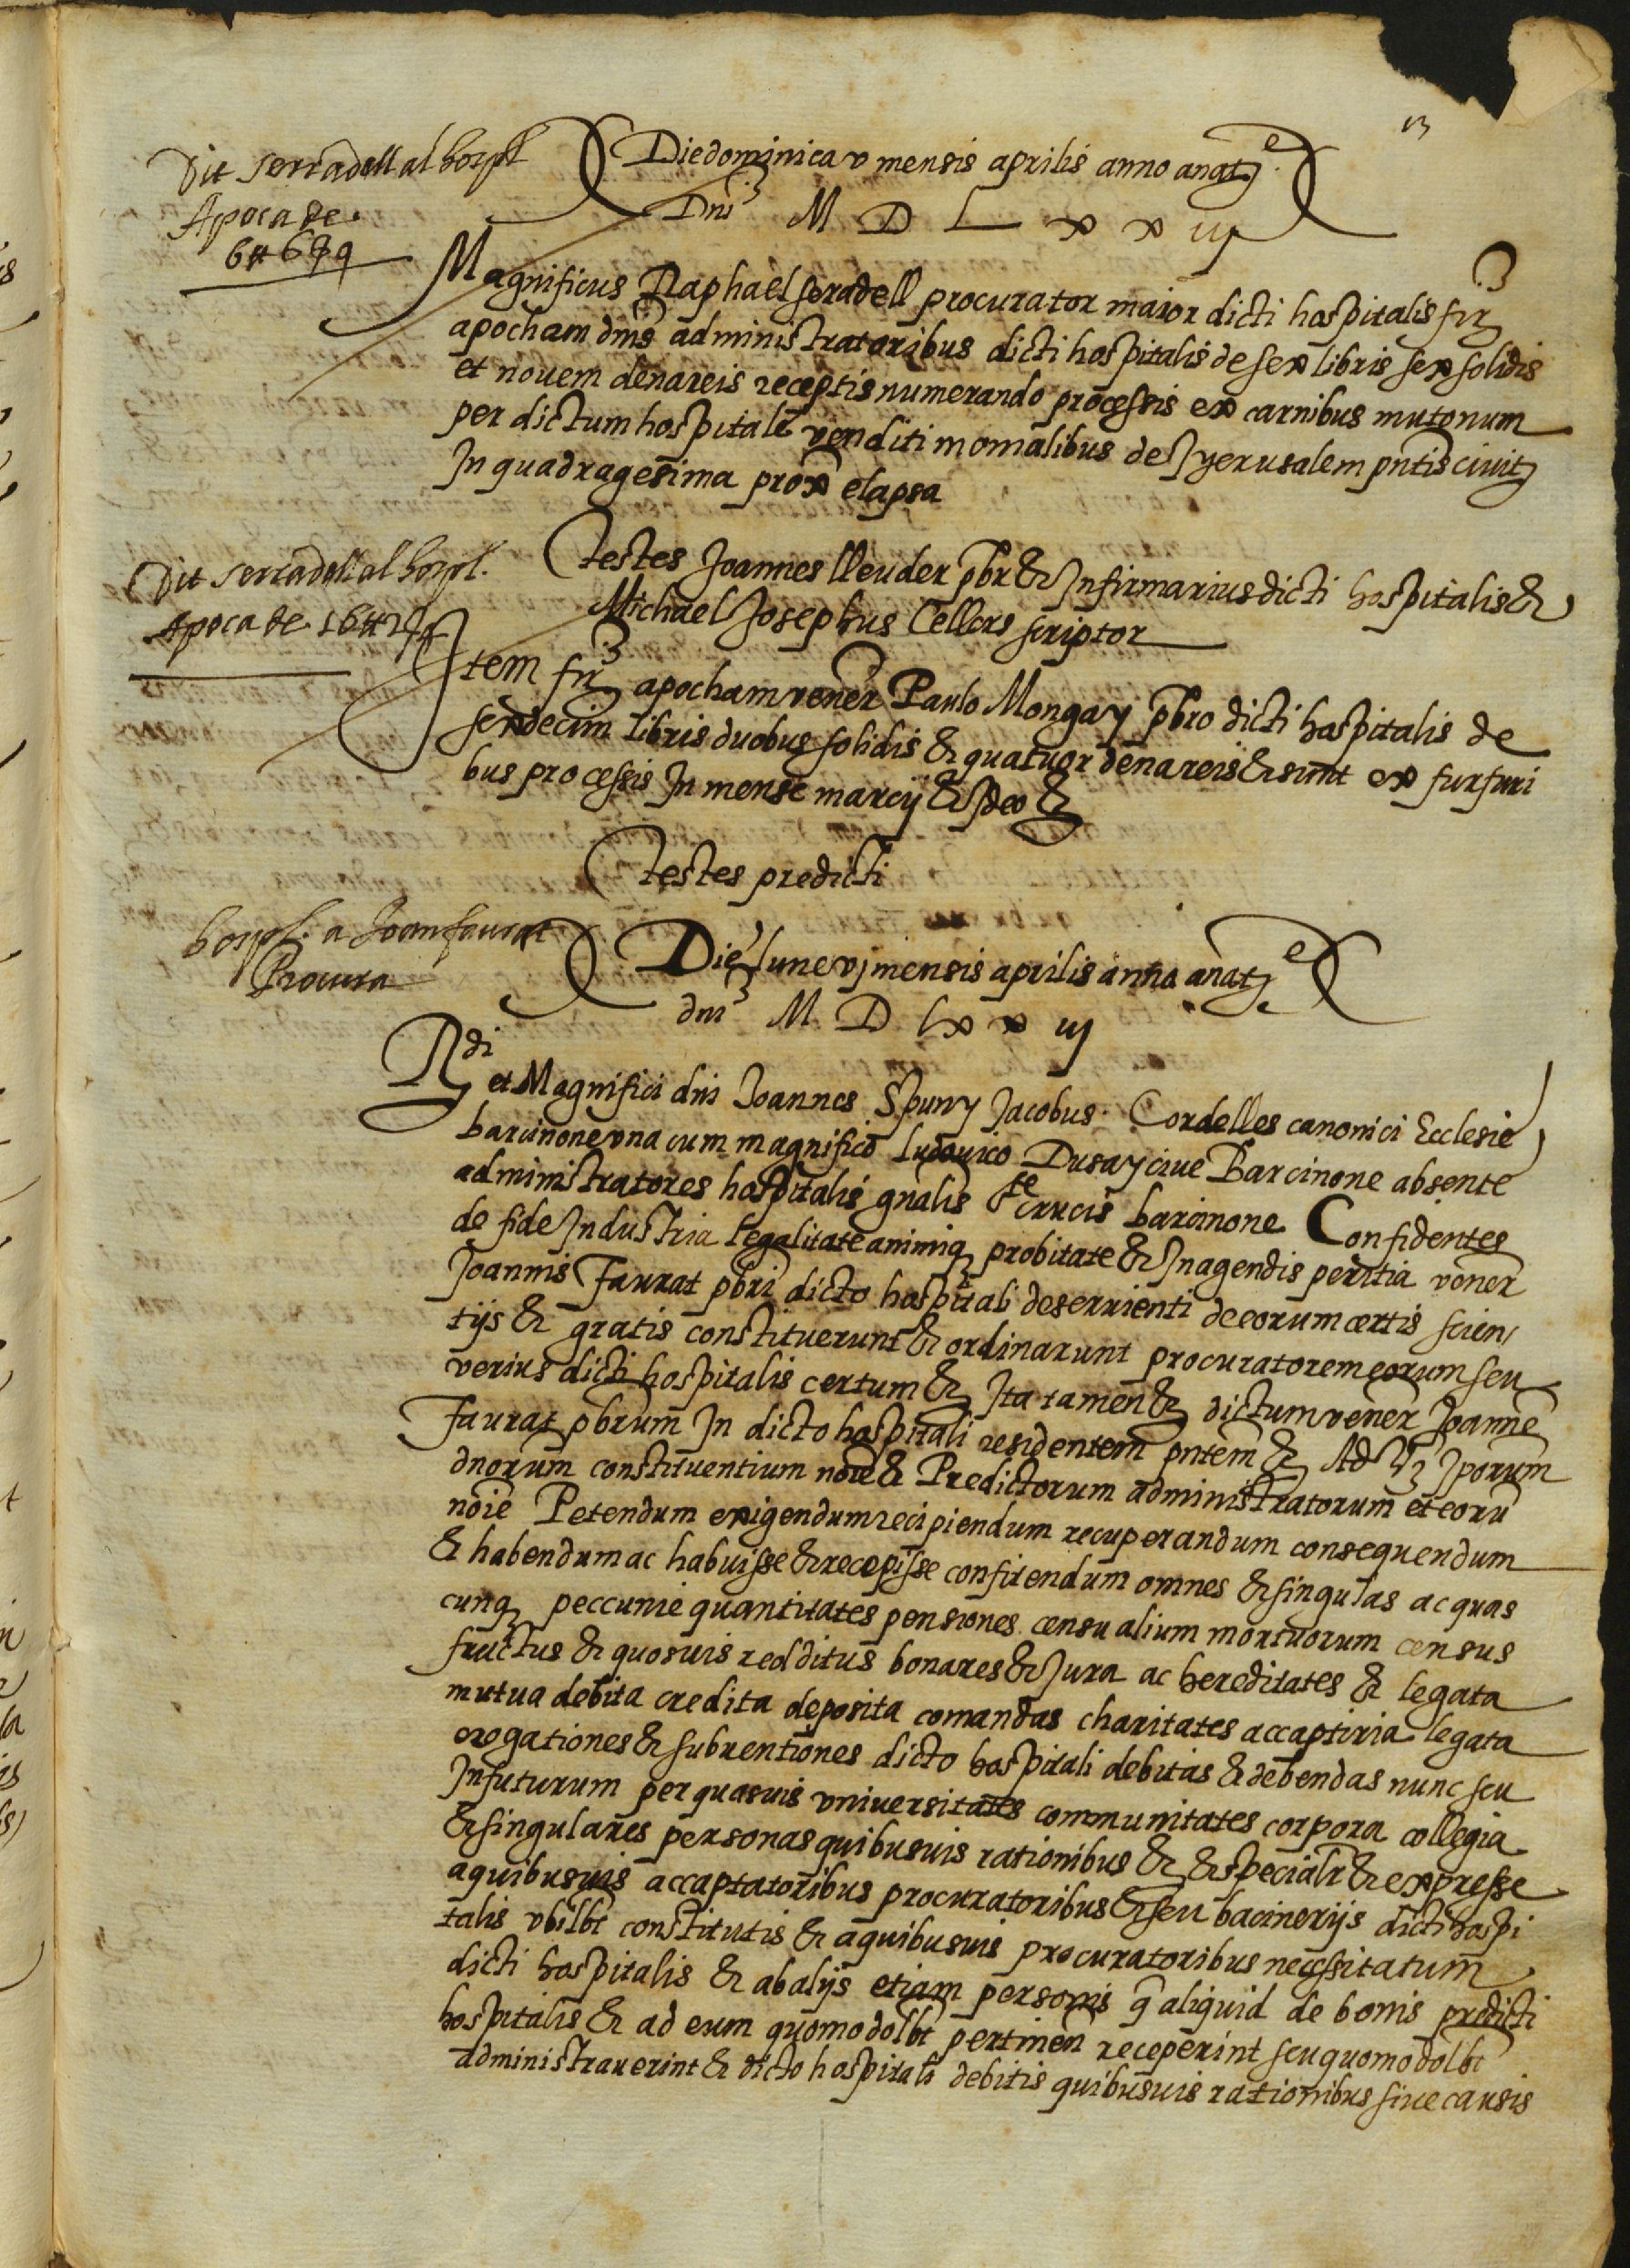 13
Dit serradell al hospl
Apoca de
6 ₶ 6 ß 9
Die dominica v mensis aprilis anno a nat.e
Dni M D L x x iij
Magnificus Raphael seradell procurator maior dicti hospitalis fir
apocham dnis administratoribus dicti hospitalis de sex libris sex solidis
et novem denareis receptis numerando processis ex carnibus mutonum
per dictum hospitale venditi monialibus de Jyerusalem pntis civit
In quadragesima prox elapsa
testes Joannes lleuder pbr & Infirmarius dicti hospitalis &
Michael Josephus Cellers scriptor
Dit serradell al hospl.
Apoca de 16 ₶ 2 ß 4
Item fir apocham vener Paulo Mongay pbro dicti hospitalis de
sexdecim libris duobus solidis & quatuor denareis & sunt ex furfuri
bus processis In mense marcij & Ideo &
testes predicti
hospl. a Joan faurat
Procura
Die lune vj mensis aprilis anno a nat e
dni M D L x x iij
Rdi et Magnifici dni Joannes Spuny Jacobus Cordelles canonici Ecclesie
barcinone vna cum magnifico Ludovico Dusay cive Barcinone absente
administratores hospitalis gnalis Ste crucis barcinone Confidentes
de fide Industria legalitate animiq probitate & In agendis peritia vener
Joannis Faurat pbri dicto hospitali deservienti de eorum certis scien
tijs & gratis constituerunt & ordinarunt procuratorem eorum seu
verius dicti hospitalis certum & Ita tamen & dictum vener Joanne
Faurat pbrum In dicto hospitali residentem pntem & Ad Iporum
dnorum constituentium noie & Predictorum administratorum et eoru
noie Petendum exigendum recipiendum recuperandum consequendum
& habendum ac habuisse & recepisse confitendum omnes & singulas ac quas
cunq peccunie quantitates pensiones censualium mortuorum census
fructus & quosvis redditus bona res & Jura ac hereditates & legata
mutua debita credita deposita comandas charitates accaptiria legata
erogationes & subventiones dicto hospitali debitas & debendas nunc seu
In futurum per quasvis vniversitates communitates corpora collegia
& singulares personas quibusvis rationibus & & specialr & expresse
a quibusvis accaptatoribus procuratoribus & seu bacinerijs dicti hospi
talis vbilbt constitutis & a quibusvis procuratoribus necessitatum
dicti hospitalis & ab alijs etiam personis q aliquid de bonis predicti
hospitalis & ad eum quomodolbt pertinen receperint seu quomodolbt
administraverint & dicto hospitali debitis quibusvis rationibus sive causis